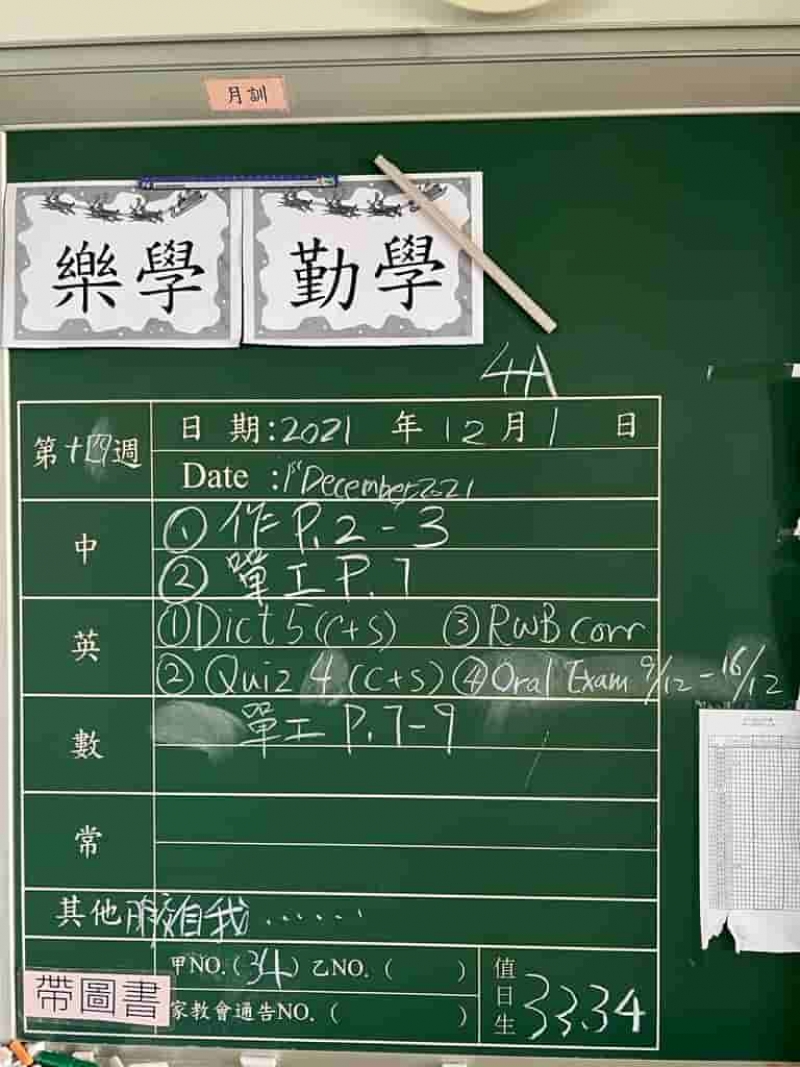 月訓
樂學 勤學
4A
第十四週 日期:2021年12月1日
Date :1st December, 2021
中 ① 作 P.2-3
② 單工 P.7
英 ① Dict 5 (C+S) ③ RWB corr
② Quiz 4 (C+S) ④ Oral Exam 9/12 - 16/12
數 單工 P.7-9
常
其他 自我......
甲NO.(34) 乙NO.( )
帶圖書 家教會通告NO.( )
值日生 33.34